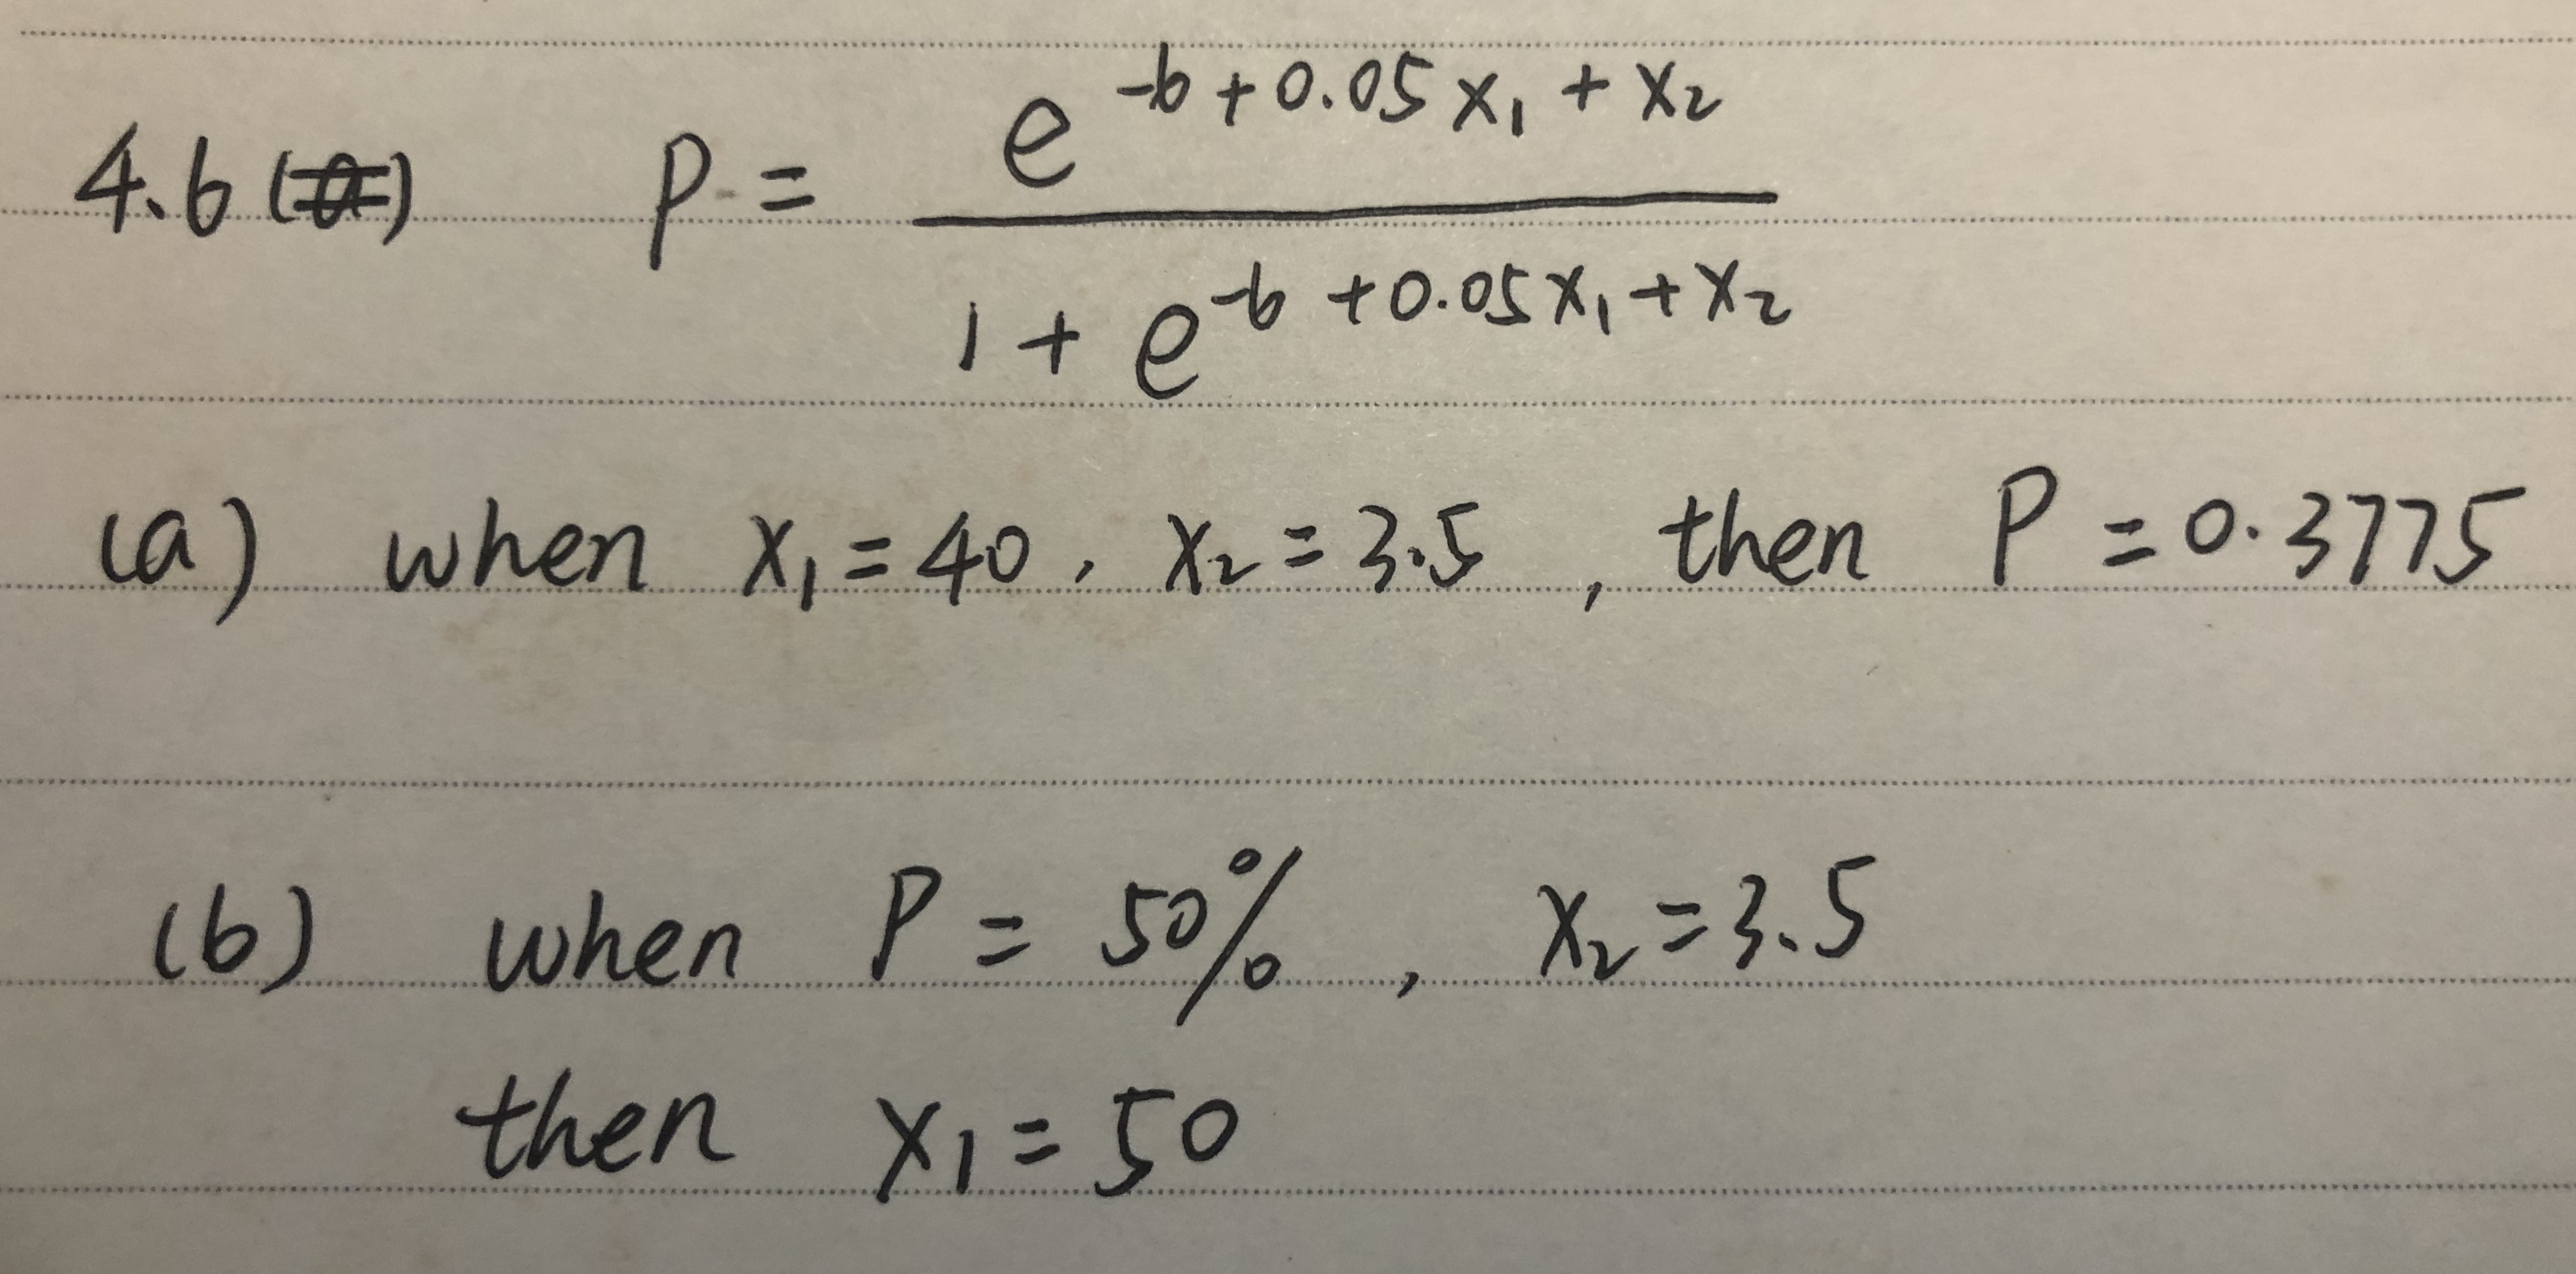 4.6 (a) P = e^{-6+0.05x₁+x₂} / (1 + e^{-6+0.05x₁+x₂})
(a) when x₁ = 40, x₂ = 3.5, then P = 0.3775
(b) when P = 50%, x₂ = 3.5
then x₁ = 50